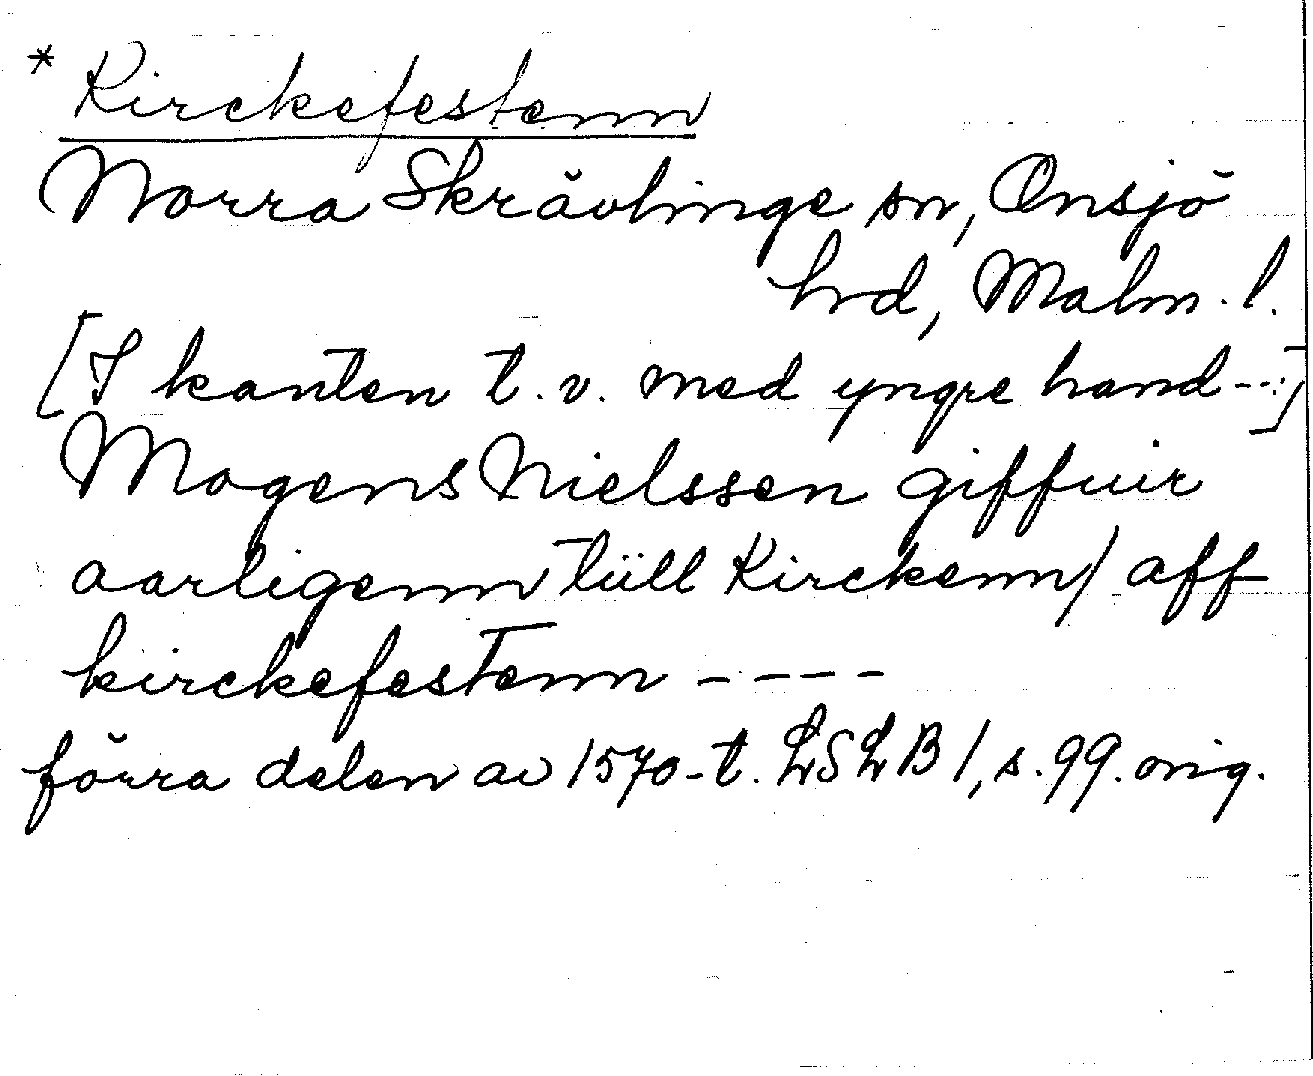 * Kirckefestenn
Norra Skrävlinge sn, Onsjö
hrd, Malm. l.
[I kanten t.v. med yngre hand --:]
Mogens Nielssen giffuir
aarligenn tüll Kirckenn/ aff
kirckefestenn ----
förra delen av 1570-t. LSLB 1, s. 99. orig.